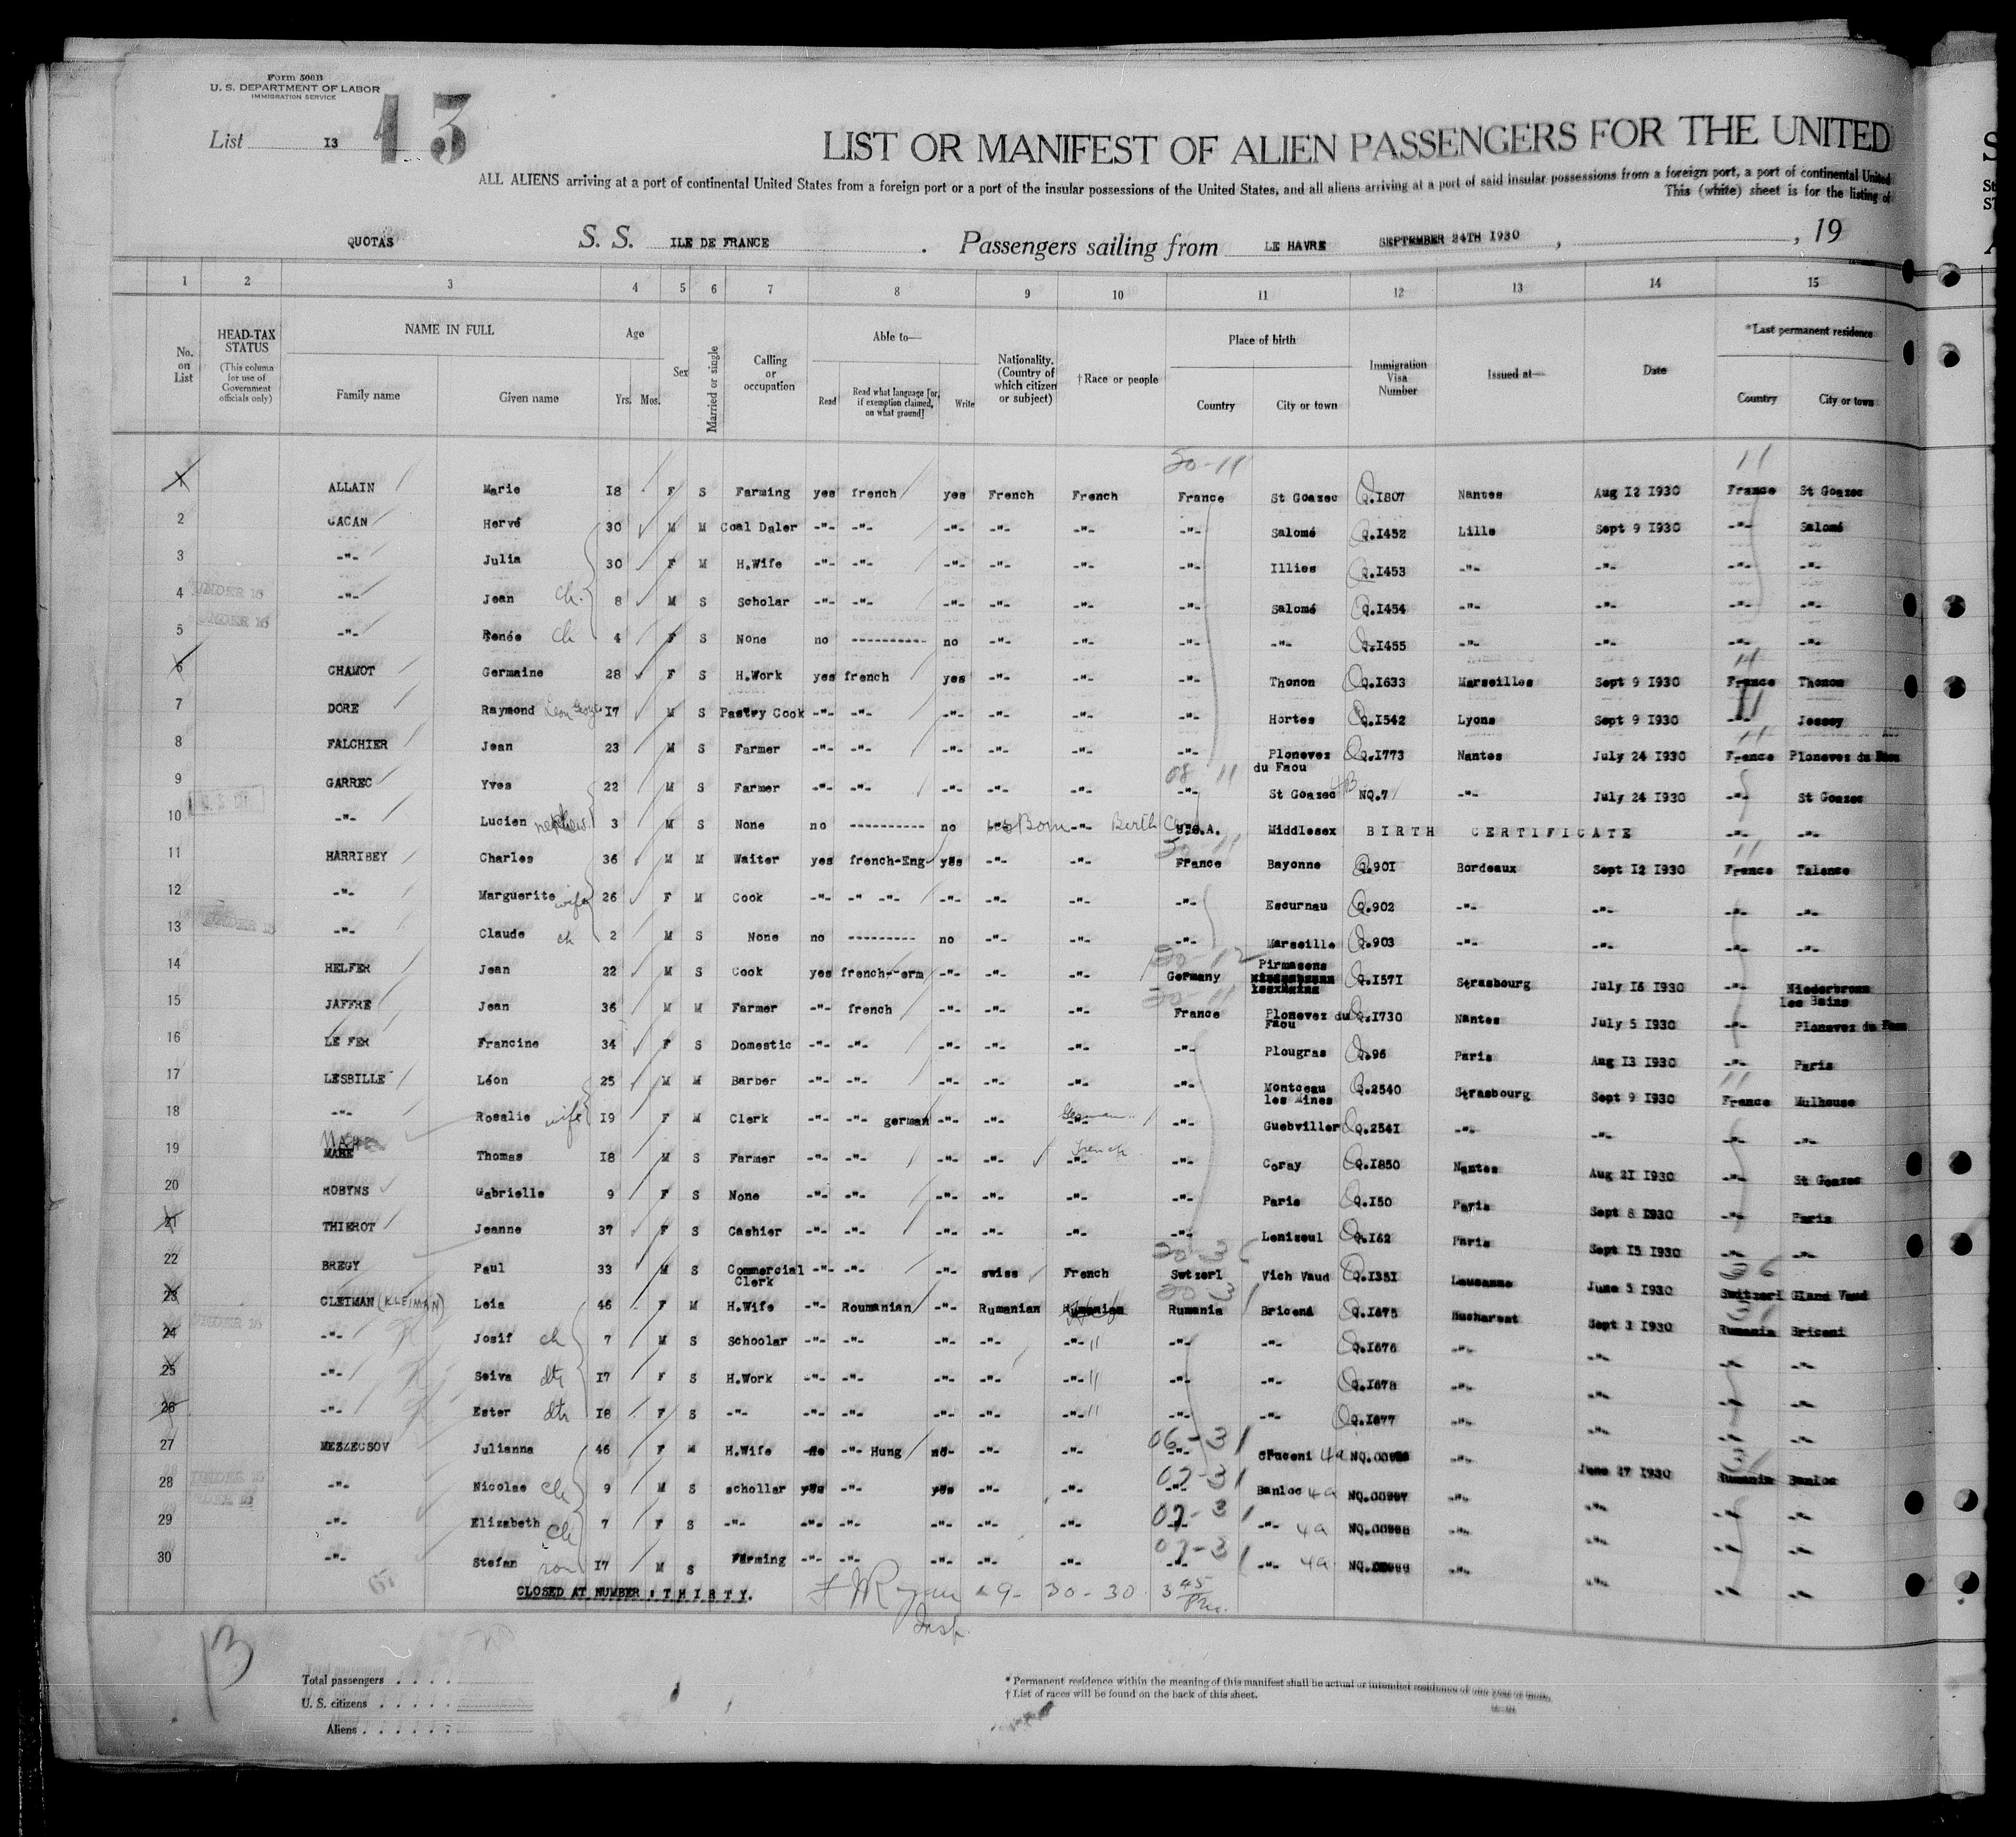 Form 500B
U. S. DEPARTMENT OF LABOR
IMMIGRATION SERVICE
List 13
13
LIST OR MANIFEST OF ALIEN PASSENGERS FOR THE UNITED
ALL ALIENS arriving at a port of continental United States from a foreign port or a port of the insular possessions of the United States, and all aliens arriving at a port of said insular possessions from a foreign port, a port of continental United
This (white) sheet is for the listing of
QUOTAS S. S. ILE DE FRANCE . Passengers sailing from LE HAVRE SEPTEMBER 24TH 1930 , , 19
1 2 3 4 5 6 7 8 9 10 11 12 13 14 15
No. on List
HEAD-TAX STATUS (This column for use of Government officials only)
NAME IN FULL Family name Given name
Age Yrs. Mos.
Sex
Married or single
Calling or occupation
Able to— Read Read what language [or, if exemption claimed, on what ground] Write
Nationality. (Country of which citizen or subject)
†Race or people
Place of birth Country City or town
Immigration Visa Number
Issued at—
Date
*Last permanent residence Country City or town
50-11 11
1 ALLAIN Marie 18 F S Farming yes french yes French French France St Goazec Q.1807 Nantes Aug 12 1930 France St Goazec
2 CACAN Hervé 30 M M Coal Daler -"- -"- -"- -"- -"- -"- Salomé Q.1452 Lille Sept 9 1930 -"- Salomé
3 -"- Julia 30 F M H.Wife -"- -"- -"- -"- -"- -"- Illies Q.1453 -"- -"- -"- -"-
4 UNDER 16 -"- Jean ch. 8 M S Scholar -"- -"- -"- -"- -"- -"- Salomé Q.1454 -"- -"- -"- -"-
5 UNDER 16 -"- Renée ch 4 F S None no ---------- no -"- -"- -"- -"- Q.1455 -"- -"- -"- -"-
6 CHAMOT Germaine 28 F S H.Work yes french yes -"- -"- -"- Thonon Q.1633 Marseilles Sept 9 1930 France Thonon
7 DORE Raymond Leon George 17 M S Pastry Cook -"- -"- -"- -"- -"- -"- Hortes Q.1542 Lyons Sept 9 1930 -"- Jessey
8 FALCHIER Jean 23 M S Farmer -"- -"- -"- -"- -"- -"- Plonevez du Faou Q.1773 Nantes July 24 1930 France Plonevez du Faou
08 11
9 GARREC Yves 22 M S Farmer -"- -"- -"- -"- -"- -"- St Goazec 4B NQ.7 -"- July 24 1930 -"- St Goazec
10 -"- Lucien nephew 3 M S None no ---------- no US Born -"- Birth U.S.A. Middlesex BIRTH CERTIFICATE -"- -"-
30-11 11
11 HARRIBEY Charles 36 M M Waiter yes french-Eng yes -"- -"- France Bayonne Q.901 Bordeaux Sept 12 1930 France Talence
12 -"- Marguerite wife 26 F M Cook -"- -"- -"- -"- -"- -"- -"- Escurnau Q.902 -"- -"- -"- -"-
13 UNDER 16 -"- Claude ch 2 M S None no --------- no -"- -"- -"- Marseille Q.903 -"- -"- -"- -"-
14 HELFER Jean 22 M S Cook yes french-Germ -"- -"- -"- Germany Pirmasens Q.1571 Strasbourg July 16 1930 -"- Niederbronn les Bains
15 JAFFRE Jean 36 M M Farmer -"- french -"- -"- -"- France Plonevez du Faou Q.1730 Nantes July 5 1930 -"- Plonevez du Faou
16 LE FER Francine 34 F S Domestic -"- -"- -"- -"- -"- -"- Plougras Q.96 Paris Aug 13 1930 -"- Paris
17 LESBILLE Léon 25 M M Barber -"- -"- -"- -"- -"- -"- Montceau les Mines Q.2540 Strasbourg Sept 9 1930 France Mulhouse
18 -"- Rosalie wife 19 F M Clerk -"- -"- german -"- -"- German -"- -"- Guebviller Q.2541 -"- -"- -"- -"-
19 MABE Thomas 18 M S Farmer -"- -"- -"- -"- French -"- -"- Coray Q.1850 Nantes Aug 21 1930 -"- St Goazec
20 ROBYNS Gabrielle 9 F S None -"- -"- -"- -"- -"- -"- Paris Q.150 Paris Sept 8 1930 -"- Paris
21 THIEROT Jeanne 37 F S Cashier -"- -"- -"- -"- -"- -"- Lenizeul Q.162 Paris Sept 15 1930 -"- -"-
22 BREGY Paul 33 M S Commercial Clerk -"- -"- -"- swiss French Swtzerl Vich Vaud Q.1351 Lausanne June 5 1930 Switzerl Gland Vaud
23 CLEIMAN (KLEIMAN) Leia 46 F M H.Wife -"- Roumanian -"- Rumanian Rumanian Rumania Briceni Q.1675 Bucharest Sept 3 1930 Rumania Briceni
24 UNDER 16 -"- Josif ch 7 M S Schoolar -"- -"- -"- -"- -"- -"- -"- Q.1676 -"- -"- -"- -"-
25 -"- Seiva dtr 17 F S H.Work -"- -"- -"- -"- -"- -"- -"- Q.1678 -"- -"- -"- -"-
26 -"- Ester dtr 18 F S -"- -"- -"- -"- -"- -"- -"- -"- Q.1677 -"- -"- -"- -"-
06-31
27 MESZECSOV Julianna 46 F M H.Wife no -"- Hung no -"- -"- -"- Cruceni 4a -"- June 27 1930 Rumania Banloc
07-31
28 UNDER 16 -"- Nicolae ch 9 M S schollar yes -"- yes -"- -"- -"- Banloc 4a -"- -"- -"- -"-
07-31
29 -"- Elizabeth ch 7 F S -"- -"- -"- -"- -"- -"- -"- -"- 4a -"- -"- -"- -"-
07-31
30 -"- Stefan son 17 M S Farming -"- -"- -"- -"- -"- -"- -"- 4a -"- -"- -"-
CLOSED AT NUMBER : T H I R T Y. F J Ryan 9-30-30 3 45 Pm.
Insp.
13
Total passengers
U. S. citizens
Aliens
* Permanent residence within the meaning of this manifest shall be actual or intended residence of one year or more.
† List of races will be found on the back of this sheet.